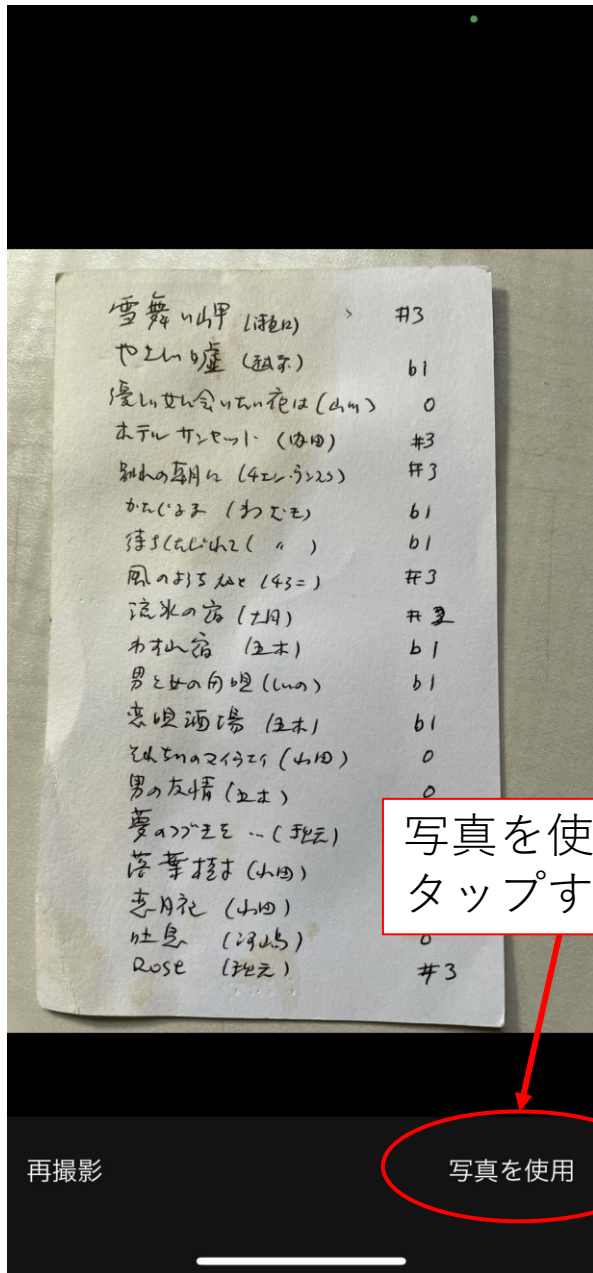 雪舞い岬 #3
やさしい嘘 b1
優しい女に会いたい花は (山川) 0
ホテル サンセット (内田) #3
別れの朝に #3
かたじるま b1
待ちくたびれて ( 〃 ) b1
風のように #3
流氷の宿 (大月) #3
わすれ宿 (五木) b1
男と女の舟唄 (しいの) b1
恋唄酒場 (五木) b1
それぞれのマイウエイ (山田) 0
男の友情 (五木) 0
夢のつづきを …
落葉樹 (山田)
恋月記 (山田)
吐息 (河嶋) 0
Rose #3
写真を使
タップす
再撮影 写真を使用